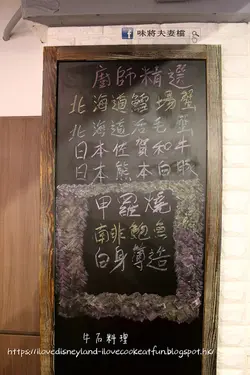 味將夫妻檔
廚師精選
北海道鱈場蟹
北海道活毛蟹
日本佐賀和牛
日本熊本白豚
甲羅燒
南非鮑魚
白身簿造
牛石料理
https://ilovedisneyland-ilovecookeatfun.blogspot.hk/